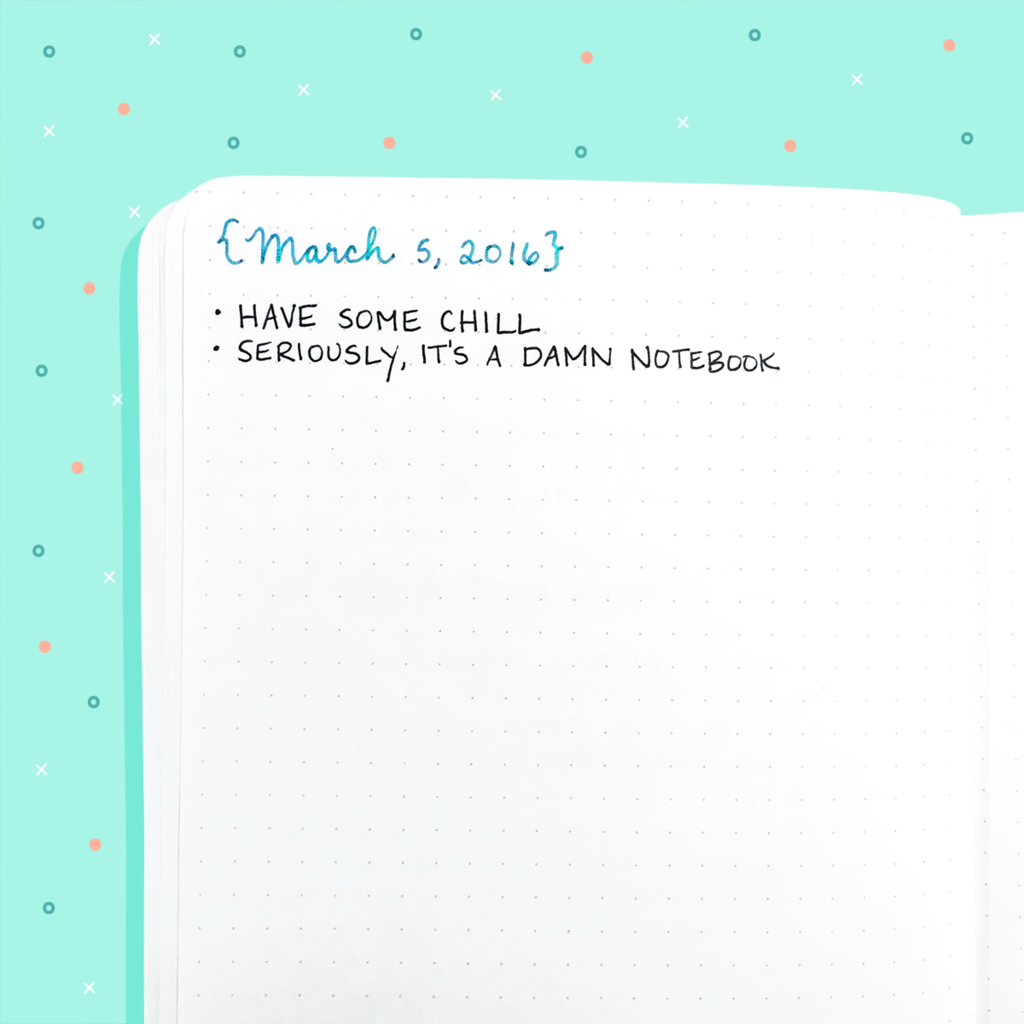 {March 5, 2016}
• HAVE SOME CHILL
• SERIOUSLY, IT'S A DAMN NOTEBOOK